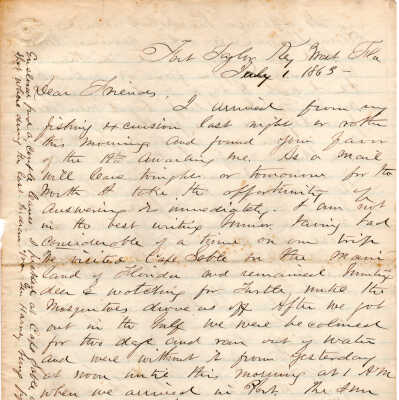 Fort Taylor Key West Fla
July 1, 1863 -
Dear Friends,
I arrived from my
fishing excursion last night or rather
this morning and found your favor
of the 18th awaiting me. As a mail
will leave tonight or tomorrow for the
North I take the opportunity of
answering it immediately. I am not
in the best writing humor having had
considerable of a time on our trip
We visited Cape Sable on the main
land of Florida and remained hunting
deer & watching for Turtle until the
Mosquitoes drove us off. After we got
out in the Gulf we were becalmed
for two days and ran out of water
and were without it from yesterday
at noon until this morning at 1 AM
when we arrived in Port. The Sun
Enclosed find a couple
I picked up at Cape Sable